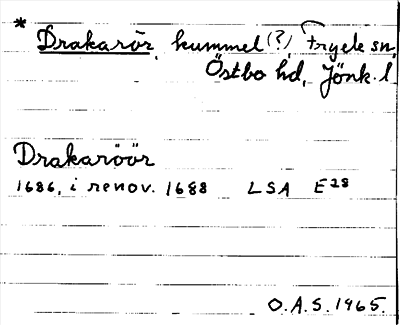 * Drakarör, kummel(?), Tryele sn,
Östbo hd, Jönk. l.
Drakaröör
1686, i renov. 1688 LSA E28
O.A.S. 1965.